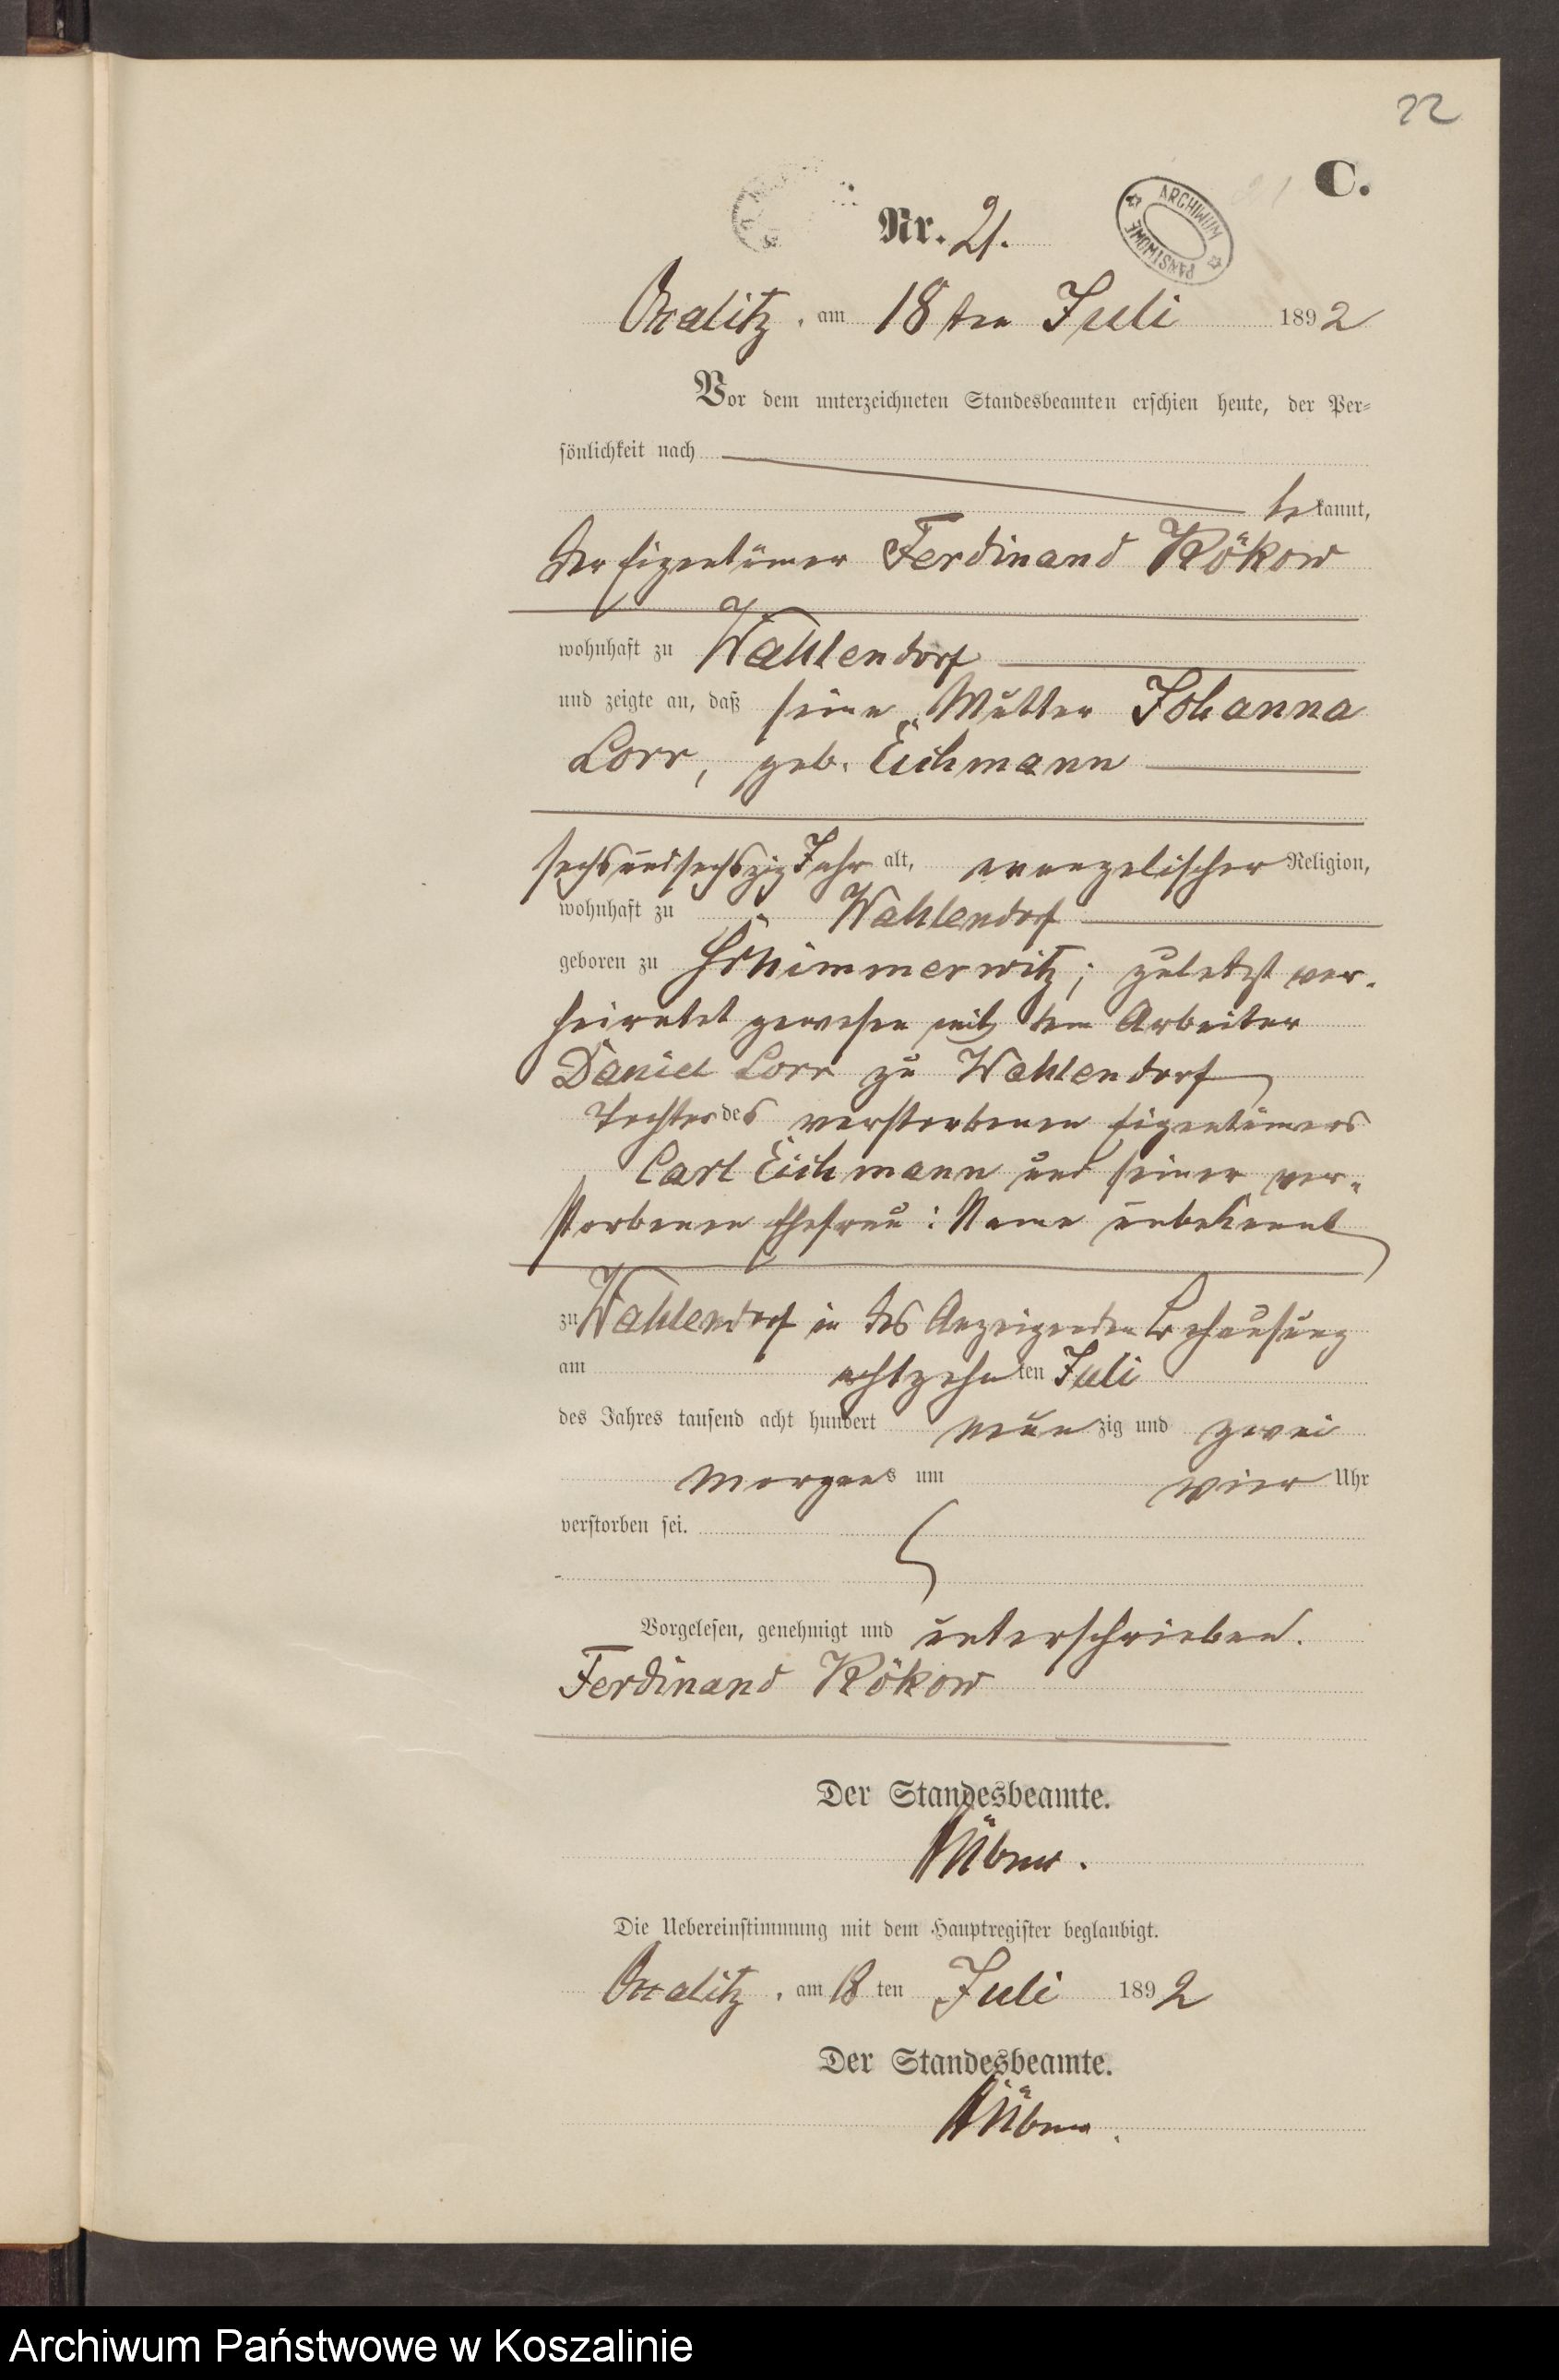 22
C.
ARCHIWUM PAŃSTWOWE
Nr. 21.
Oxalitz, am 18 ten Juli 1892
Vor dem unterzeichneten Standesbeamten erschien heute, der Per-
sönlichkeit nach
bekannt,
der Eigentümer Ferdinand Rökow
wohnhaft zu Wahlendorf
und zeigte an, daß seine Mutter Johanna
Lorr, geb. Eichmann
sechsundsechszig Jahr alt, evangelischer Religion,
wohnhaft zu Wahlendorf
geboren zu Schimmerwitz; zuletzt ver-
heiratet gewesen mit dem Arbeiter
Daniel Lorr zu Wahlendorf
Tochter des verstorbenen Eigentümers
Carl Eichmann und seiner ver-
storbenen Ehefrau: Name unbekannt
zu Wahlendorf in des Anzeigenden Behausung
am achtzehnten Juli
des Jahres tausend acht hundert neunzig und zwei
Morgens um vier Uhr
verstorben sei.
Vorgelesen, genehmigt und unterschrieben.
Ferdinand Rökow
Der Standesbeamte.
Die Uebereinstimmung mit dem Hauptregister beglaubigt.
Oxalitz, am 18 ten Juli 1892
Der Standesbeamte.
Archiwum Państwowe w Koszalinie